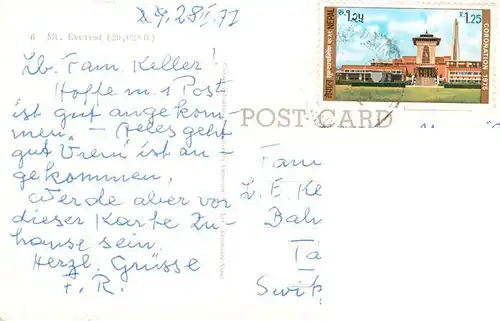 29. 28 II 77
6 Mt. Everest (29,028 ft.)
Lb. Fam. Keller!
Hoffe m. 1 Post
ist gut angekom-
men. – Alles geht
gut Vreni ist an-
gekommen.
Werde aber vor
dieser Karte Zu-
hause sein.
Herzl. Grüsse
F. R.
रु. १.२५
1.25
NEPAL
CORONATION 1975
POST CARD
Fam
L. E. Ke
Bah
Tä
Swit